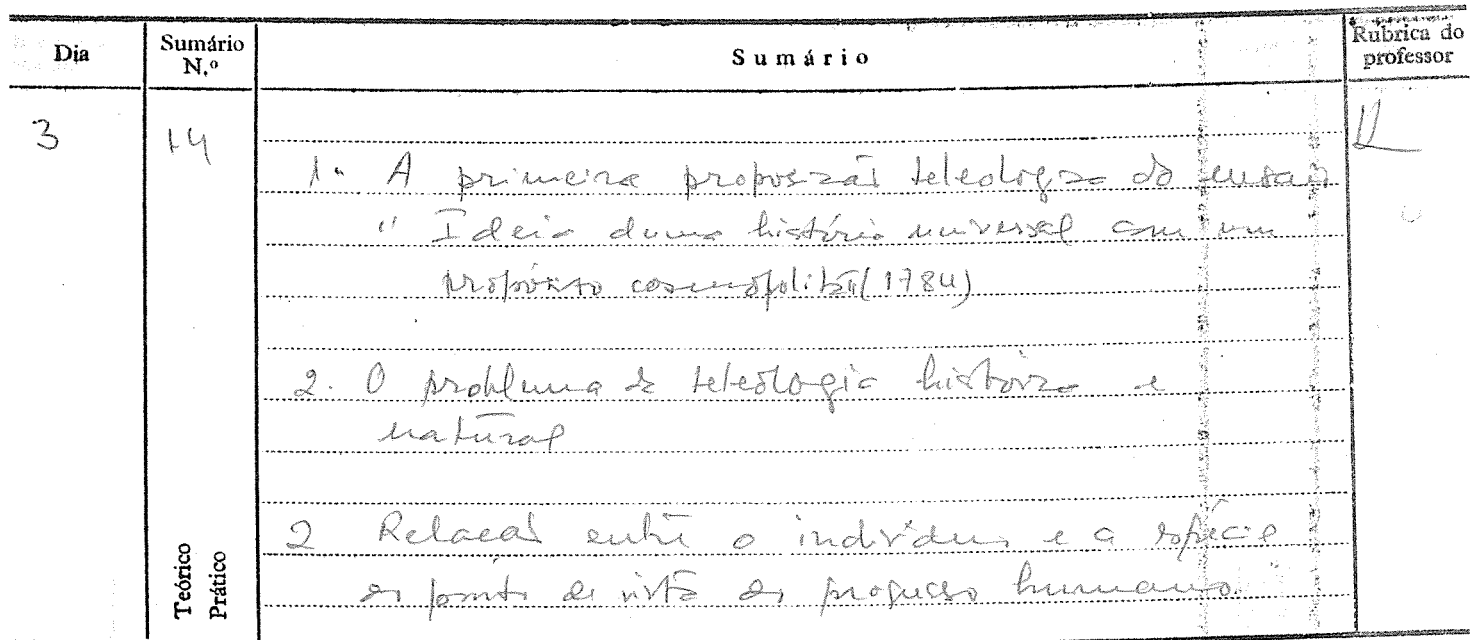 Dia
Sumário N.º
Sumário
Rubrica do professor
3
14
1. A primeira proposição teleológica do ensaio
"Ideia duma história universal com um
propósito cosmopolita (1784)
2. O problema da teleologia histórica e
natural
2 Relação entre o indivíduo e a espécie
do ponto de vista do progresso humano.
Teórico
Prático